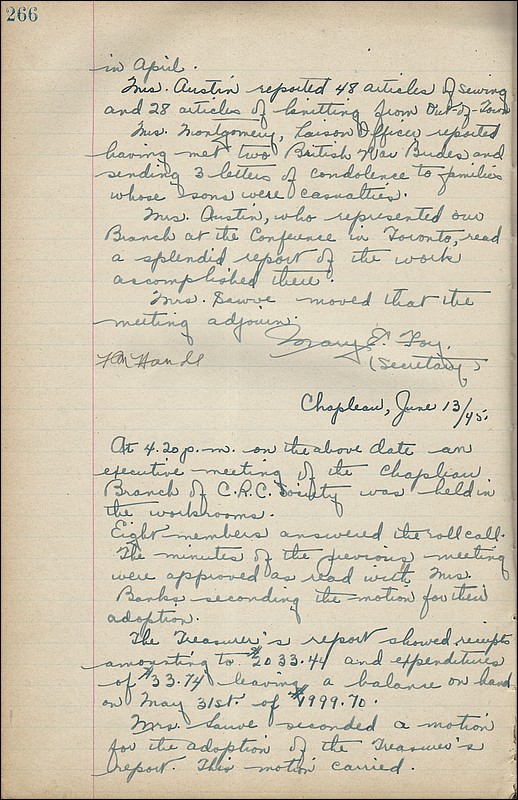 266
in April.
Mrs. Austin reported 48 articles of sewing
and 28 articles of knitting from Out-of-Town
Mrs. Montgomery, Liaison Officer reported
having met two British War Brides and
sending 3 letters of condolence to families
whose sons were casualties.
Mrs. Austin, who represented our
Branch at the Conference in Toronto, read
a splendid report of the work
accomplished there.
Mrs. Sauve moved that the
meeting adjourn.
Mary E. Foy.
(Secretary)
Chapleau, June 13/45.
At 4.20 p.m. on the above date an
executive meeting of the Chapleau
Branch of C.R.C. Society was held in
the workrooms.
Eight members answered the roll call.
The minutes of the previous meeting
were approved as read with Mrs.
Banks seconding the motion for their
adoption.
The Treasurer's report showed receipts
amounting to $2033.44 and expenditures
of $33.74 leaving a balance on hand
on May 31st. of $1999.70.
Mrs. Sauve seconded a motion
for the adoption of the Treasurer's
report. This motion carried.